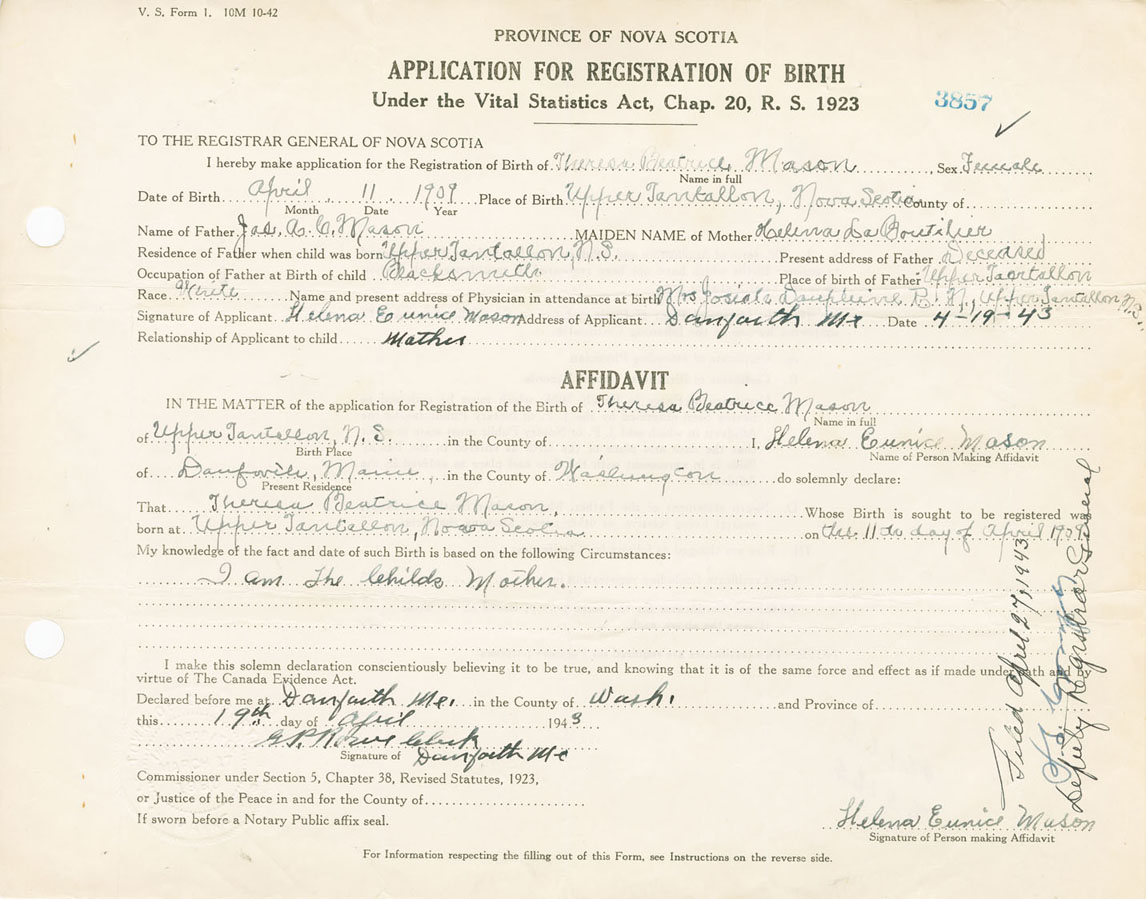 V. S. Form 1. 10M 10-42
PROVINCE OF NOVA SCOTIA
APPLICATION FOR REGISTRATION OF BIRTH
Under the Vital Statistics Act, Chap. 20, R. S. 1923
3857
TO THE REGISTRAR GENERAL OF NOVA SCOTIA
I hereby make application for the Registration of Birth of Theresa Beatrice Mason Sex Female
Name in full
Date of Birth April 11 1909 Place of Birth Upper Tantallon, Nova Scotia County of
Month Date Year
Name of Father Jas. A. C. Mason MAIDEN NAME of Mother Helena La Boutilier
Residence of Father when child was born Upper Tantallon, N.S. Present address of Father Deceased
Occupation of Father at Birth of child Blacksmith Place of birth of Father Upper Tantallon
Race White Name and present address of Physician in attendance at birth Mrs Josiah Dauphine Upper Tantallon N.S.
Signature of Applicant Helena Eunice Mason Address of Applicant Danforth Me Date 4-19-43
Relationship of Applicant to child Mother
AFFIDAVIT
IN THE MATTER of the application for Registration of the Birth of Theresa Beatrice Mason
Name in full
of Upper Tantallon, N.S. in the County of I, Helena Eunice Mason
Birth Place Name of Person Making Affidavit
of Danforth, Maine, in the County of Washington do solemnly declare:
Present Residence
That Theresa Beatrice Mason, Whose Birth is sought to be registered was
born at Upper Tantallon, Nova Scotia on the 11th day of April 1909
My knowledge of the fact and date of such Birth is based on the following Circumstances:
I am the Childs Mother.
I make this solemn declaration conscientiously believing it to be true, and knowing that it is of the same force and effect as if made under oath and by
virtue of The Canada Evidence Act.
Declared before me at Danforth Me. in the County of Wash. and Province of
this 19th day of April 1943
Clerk
Signature of Danforth Me
Commissioner under Section 5, Chapter 38, Revised Statutes, 1923,
or Justice of the Peace in and for the County of
If sworn before a Notary Public affix seal.
Helena Eunice Mason
Signature of Person making Affidavit
For Information respecting the filling out of this Form, see Instructions on the reverse side.
Filed April 27, 1943
Deputy Registrar General